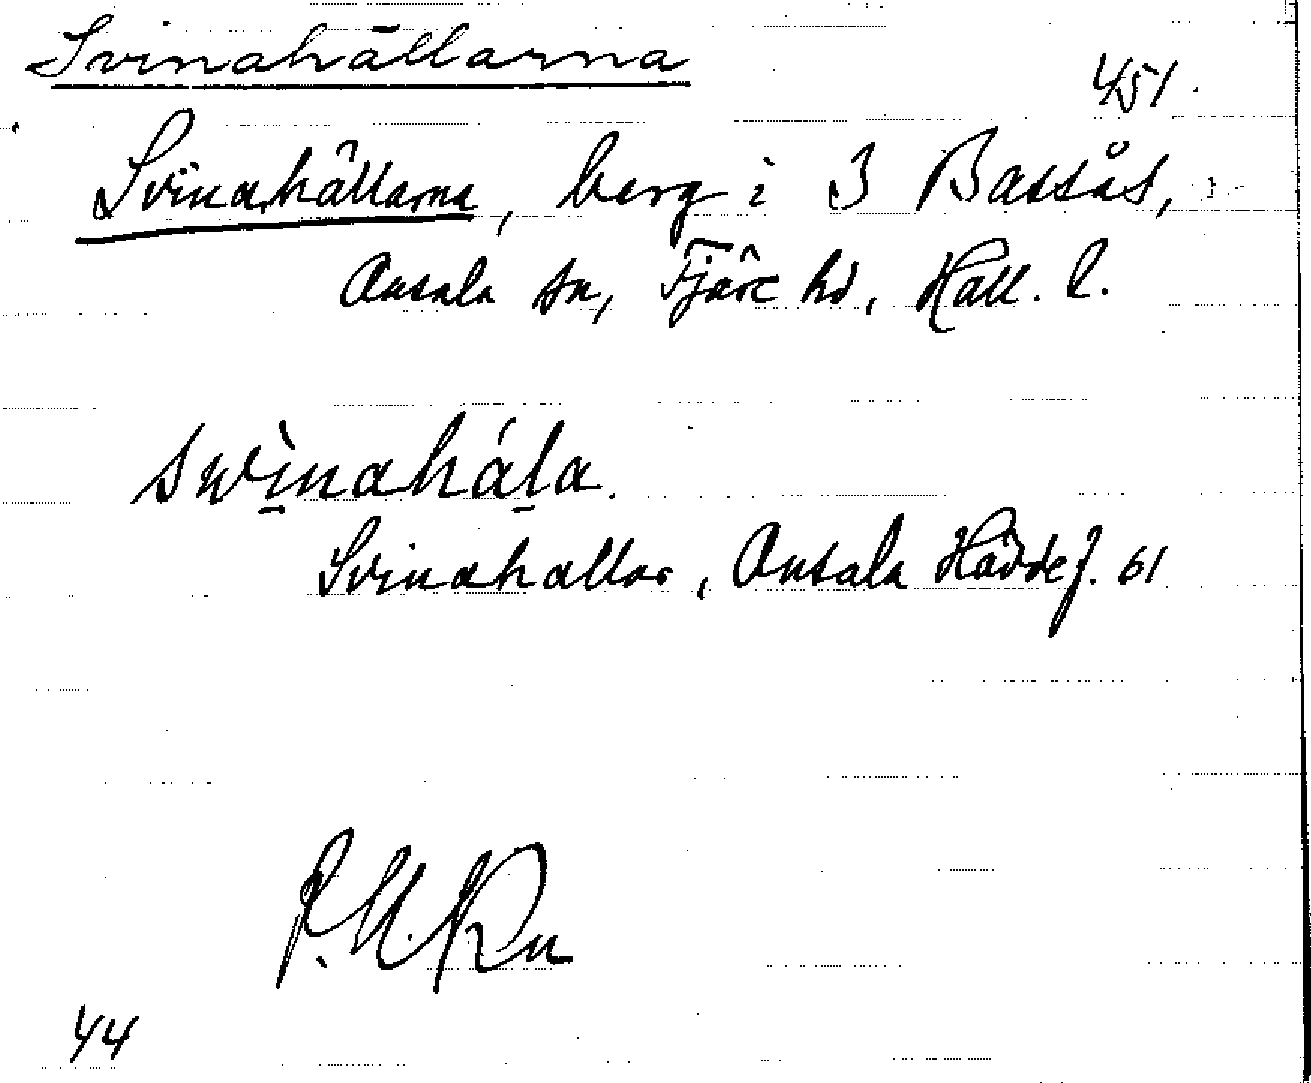 Svinahällarna
4/51.
Svinahällarna, berg i 3 Bassås,
Onsala sn, Fjäre hd, Hall. l.
swìnahála.
Svinahallar, Onsala Häddef. 61
44